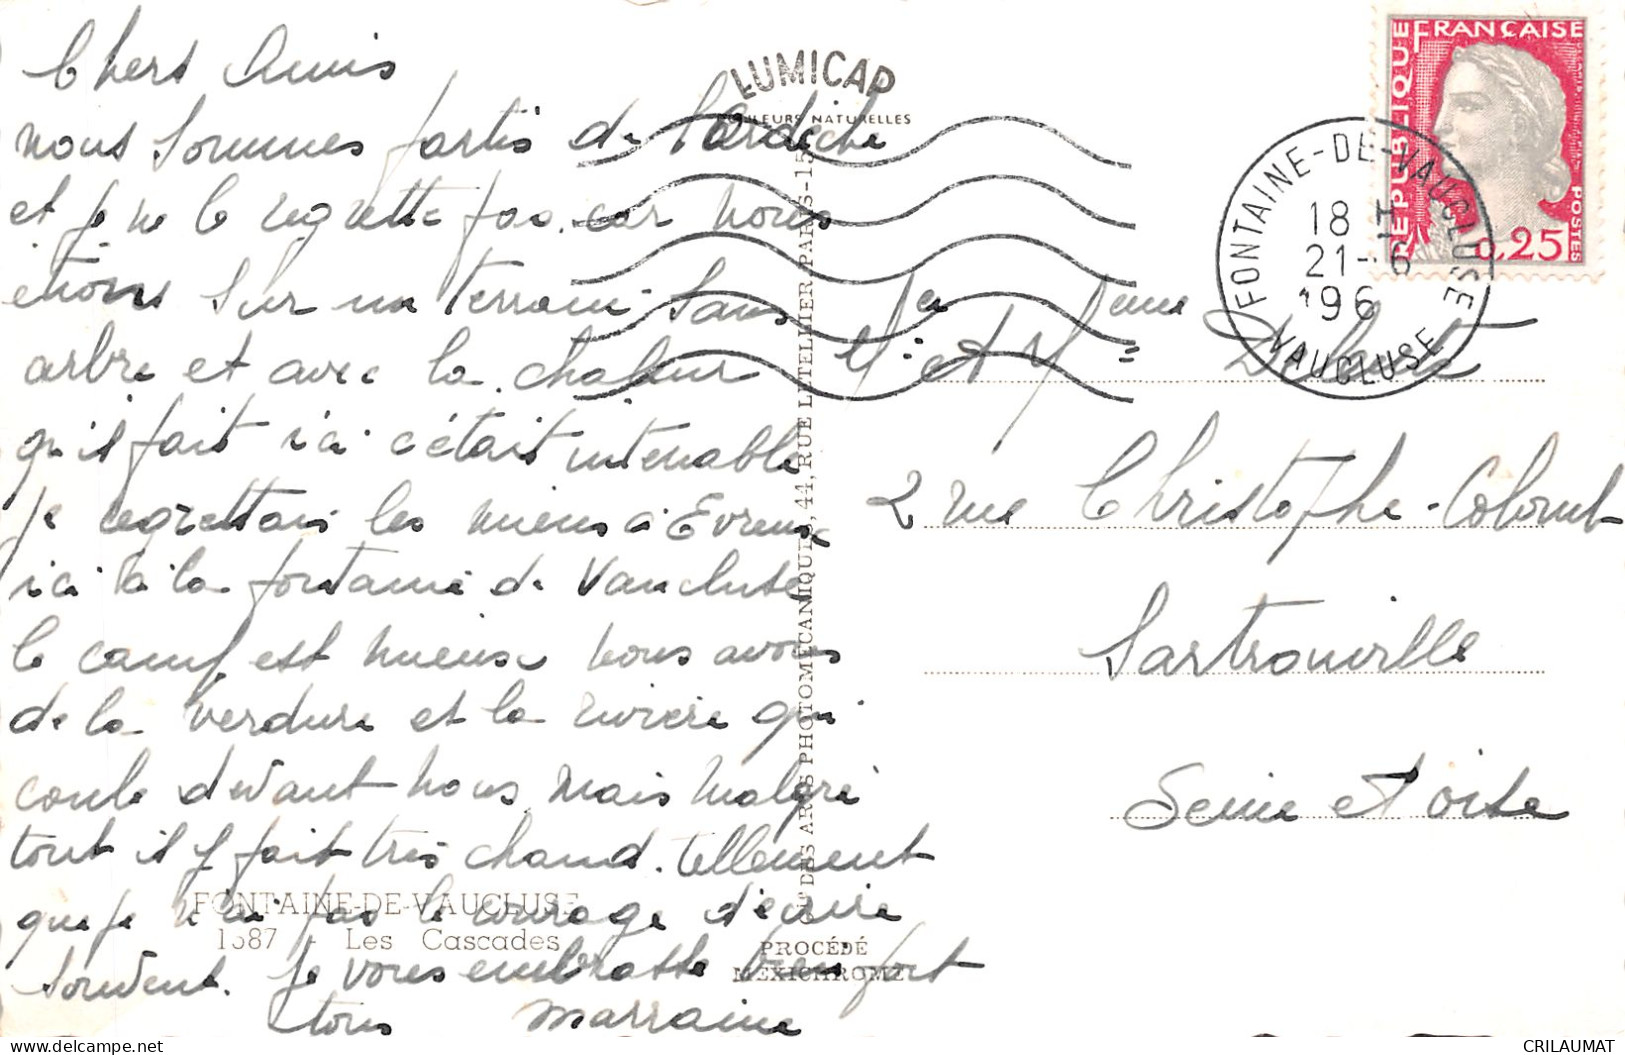 Chers Amis
nous sommes partis de l'ardèche
et je ne le regrette pas. car nous
etions sur un terrain sans
arbre et avec la chaleur
qu'il fait ici c'était intenable
je regrettais les miens à Evreux
ici à la fontaine de Vaucluse
le camp est mieux nous avons
de la verdure et la rivière qui
coule devant nous, mais malgré
tout il y fait très chaud. tellement
que je n'ai pas le courage d'écrire
souvent. Je vous embrasse bien fort
tous marraine
FONTAINE-DE-VAUCLUSE
1587 - Les Cascades
LUMICAP
COULEURS NATURELLES
CIE DES ARTS PHOTOMÉCANIQUES, 44, RUE LETELLIER, PARIS-15e
PROCÉDÉ
MEXICHROME
RÉPUBLIQUE FRANÇAISE
POSTES
0,25
FONTAINE-DE-VAUCLUSE
18 H
21-6
196
VAUCLUSE
Mr et Mme
2 rue Christophe-Colomb
Sartrouville
Seine et oise
CRILAUMAT